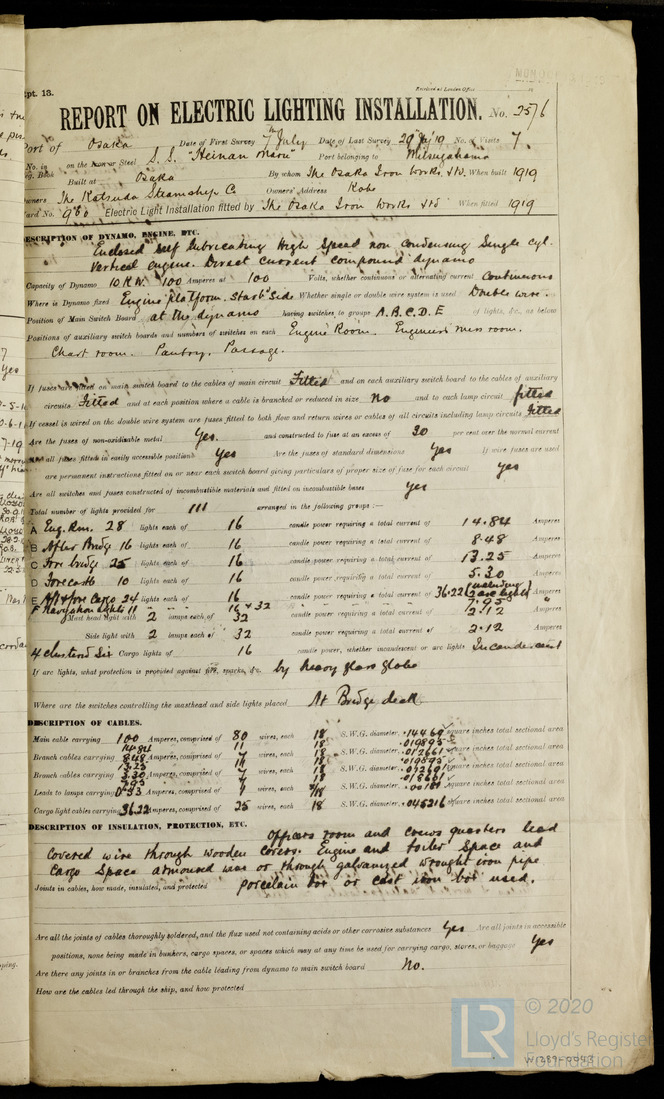 Rpt. 13.
Received at London Office
REPORT ON ELECTRIC LIGHTING INSTALLATION. No. 2576
Port of Osaka Date of First Survey 7th July Date of Last Survey No. of Visits 7.
No. in on the Iron or Steel S.S. "Heinan Maru" Port belonging to
Reg. Book
Built at Osaka By whom The Osaka Iron Works, Ltd. When built 1919
Owners The Katsuda Steamship Co Owners' Address Kobe
Yard No. 980 Electric Light Installation fitted by The Osaka Iron Works Ltd When fitted 1919
DESCRIPTION OF DYNAMO, ENGINE, ETC.
Enclosed self lubricating High Speed non condensing Single cyl.
Vertical engine. Direct current compound dynamo
Capacity of Dynamo 10 K.W. 100 Amperes at 100 Volts, whether continuous or alternating current Continuous
Where is Dynamo fixed Engine platform. Starbd Side Whether single or double wire system is used Double wire.
Position of Main Switch Board at the dynamo having switches to groups A.B.C.D.E of lights, &c., as below
Positions of auxiliary switch boards and numbers of switches on each Engine Room. Engineers mess room.
Chart room. Pantry. Passage.
If fuses are fitted on main switch board to the cables of main circuit Fitted and on each auxiliary switch board to the cables of auxiliary
circuits Fitted and at each position where a cable is branched or reduced in size No and to each lamp circuit fitted
If vessel is wired on the double wire system are fuses fitted to both flow and return wires or cables of all circuits including lamp circuits fitted
Are the fuses of non-oxidizable metal Yes. and constructed to fuse at an excess of 30 per cent over the normal current
Are all fuses fitted in easily accessible positions Yes Are the fuses of standard dimensions Yes If wire fuses are used
are permanent instructions fitted on or near each switch board giving particulars of proper size of fuse for each circuit yes
Are all switches and fuses constructed of incombustible materials and fitted on incombustible bases yes
Total number of lights provided for 111 arranged in the following groups :—
A Eng. Rm. 28 lights each of 16 candle power requiring a total current of 14.84 Amperes
B After Bridge 16 lights each of 16 candle power requiring a total current of 8.48 Amperes
C Fore bridge 25 lights each of 16 candle power requiring a total current of 13.25 Amperes
D Forecastle 10 lights each of 16 candle power requiring a total current of 5.30 Amperes
E Aft & fore Cargo 24 lights each of 16 candle power requiring a total current of 36.22 (including Amperes
F Navigation Lights 11 16 & 32 7.95 "
2 Mast head light with 2 lamps each of 32 candle power requiring a total current of 2.12 Amperes
Side light with 2 lamps each of 32 candle power requiring a total current of 2.12 Amperes
4 clustered Six Cargo lights of 16 candle power, whether incandescent or arc lights Incandescent
If arc lights, what protection is provided against fire, sparks, &c. by heavy glass globe
Where are the switches controlling the masthead and side lights placed At Bridge deck.
DESCRIPTION OF CABLES.
Main cable carrying 100 Amperes, comprised of 80 wires, each 18 S.W.G. diameter, .14460 square inches total sectional area
14.84 11 18 .019895
Branch cables carrying 8.48 Amperes, comprised of 7 wires, each 18 S.W.G. diameter, .012661 square inches total sectional area
13.25 11 18 .019895
Branch cables carrying 5.30 Amperes, comprised of 7 wires, each 18 S.W.G. diameter, square inches total sectional area
Leads to lamps carrying 0.53 Amperes, comprised of 1 wires, each S.W.G. diameter, square inches total sectional area
Cargo light cables carrying 36.22 Amperes, comprised of 25 wires, each 18 S.W.G. diameter, .045216 square inches total sectional area
DESCRIPTION OF INSULATION, PROTECTION, ETC.
Officers room and crews quarters lead
Covered wire through wooden covers. Engine and boiler Space and
Cargo Space armoured wire or through galvanized wrought iron pipe
Joints in cables, how made, insulated, and protected porcelain box or cast iron box used.
Are all the joints of cables thoroughly soldered, and the flux used not containing acids or other corrosive substances Yes Are all joints in accessible
positions, none being made in bunkers, cargo spaces, or spaces which may at any time be used for carrying cargo, stores, or baggage Yes
Are there any joints in or branches from the cable leading from dynamo to main switch board No.
How are the cables led through the ship, and how protected
LR © 2020
Lloyd's Register
Foundation
W1289-0043